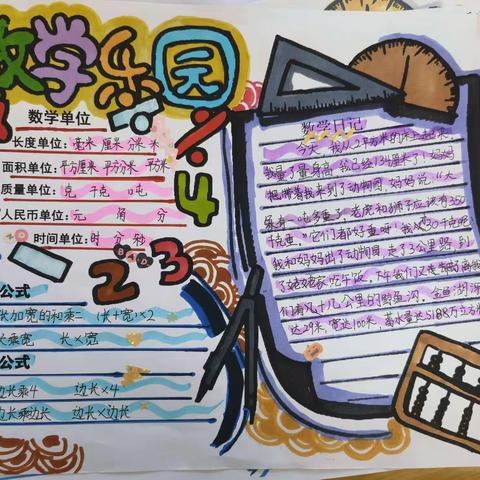 数学乐园
数学单位
长度单位:毫米 厘米 分米 米
面积单位:平方厘米 平方分米 平方米
质量单位:克 千克 吨
人民币单位:元 角 分
时间单位:时 分 秒
公式
长加宽的和乘二 (长+宽)×2
长乘宽 长×宽
公式
边长乘4 边长×4
边长乘边长 边长×边长
4
2 3
数学日记
今天,我从2平方米的床上起来,
我量了量身高,我已经134厘米了!妈妈
把带着我来到了动物园,妈妈说:“大
象有一吨多重了,老虎和狮子应该有350
千克重。”它们都好重呀!我才30千克呢
我和妈妈出了动物园,走了3公里路,到
了姥姥家吃午饭,下午我们又
们有八十几公里的 鱼沟,金鱼湖
达29米,宽达100米,蓄水量达5188万立方米